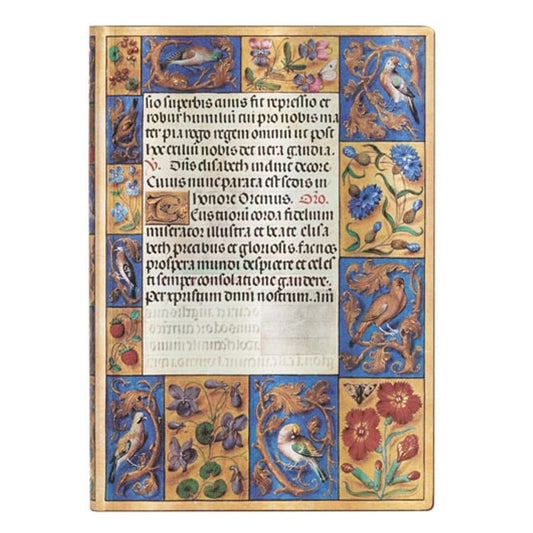 sio superbis cuius fit repressio et
robur humiliū tui pro nobis ma
ter pia rogo regem omniū ut post
hoc exiliū nobis det uera gaudia.
V. Dn̄s elisabeth induit decore.
Cuius nunc parata est sedis in
honore Oremus. Oro.
Deus tuorū corda fidelium
miserator illustra et beate elisa
beth precibus et gloriosis. fac nos
prospera mundi despicere et celes
ti semper consolatione gaudere.
per xpristum dnm̄ nostrum. am̄